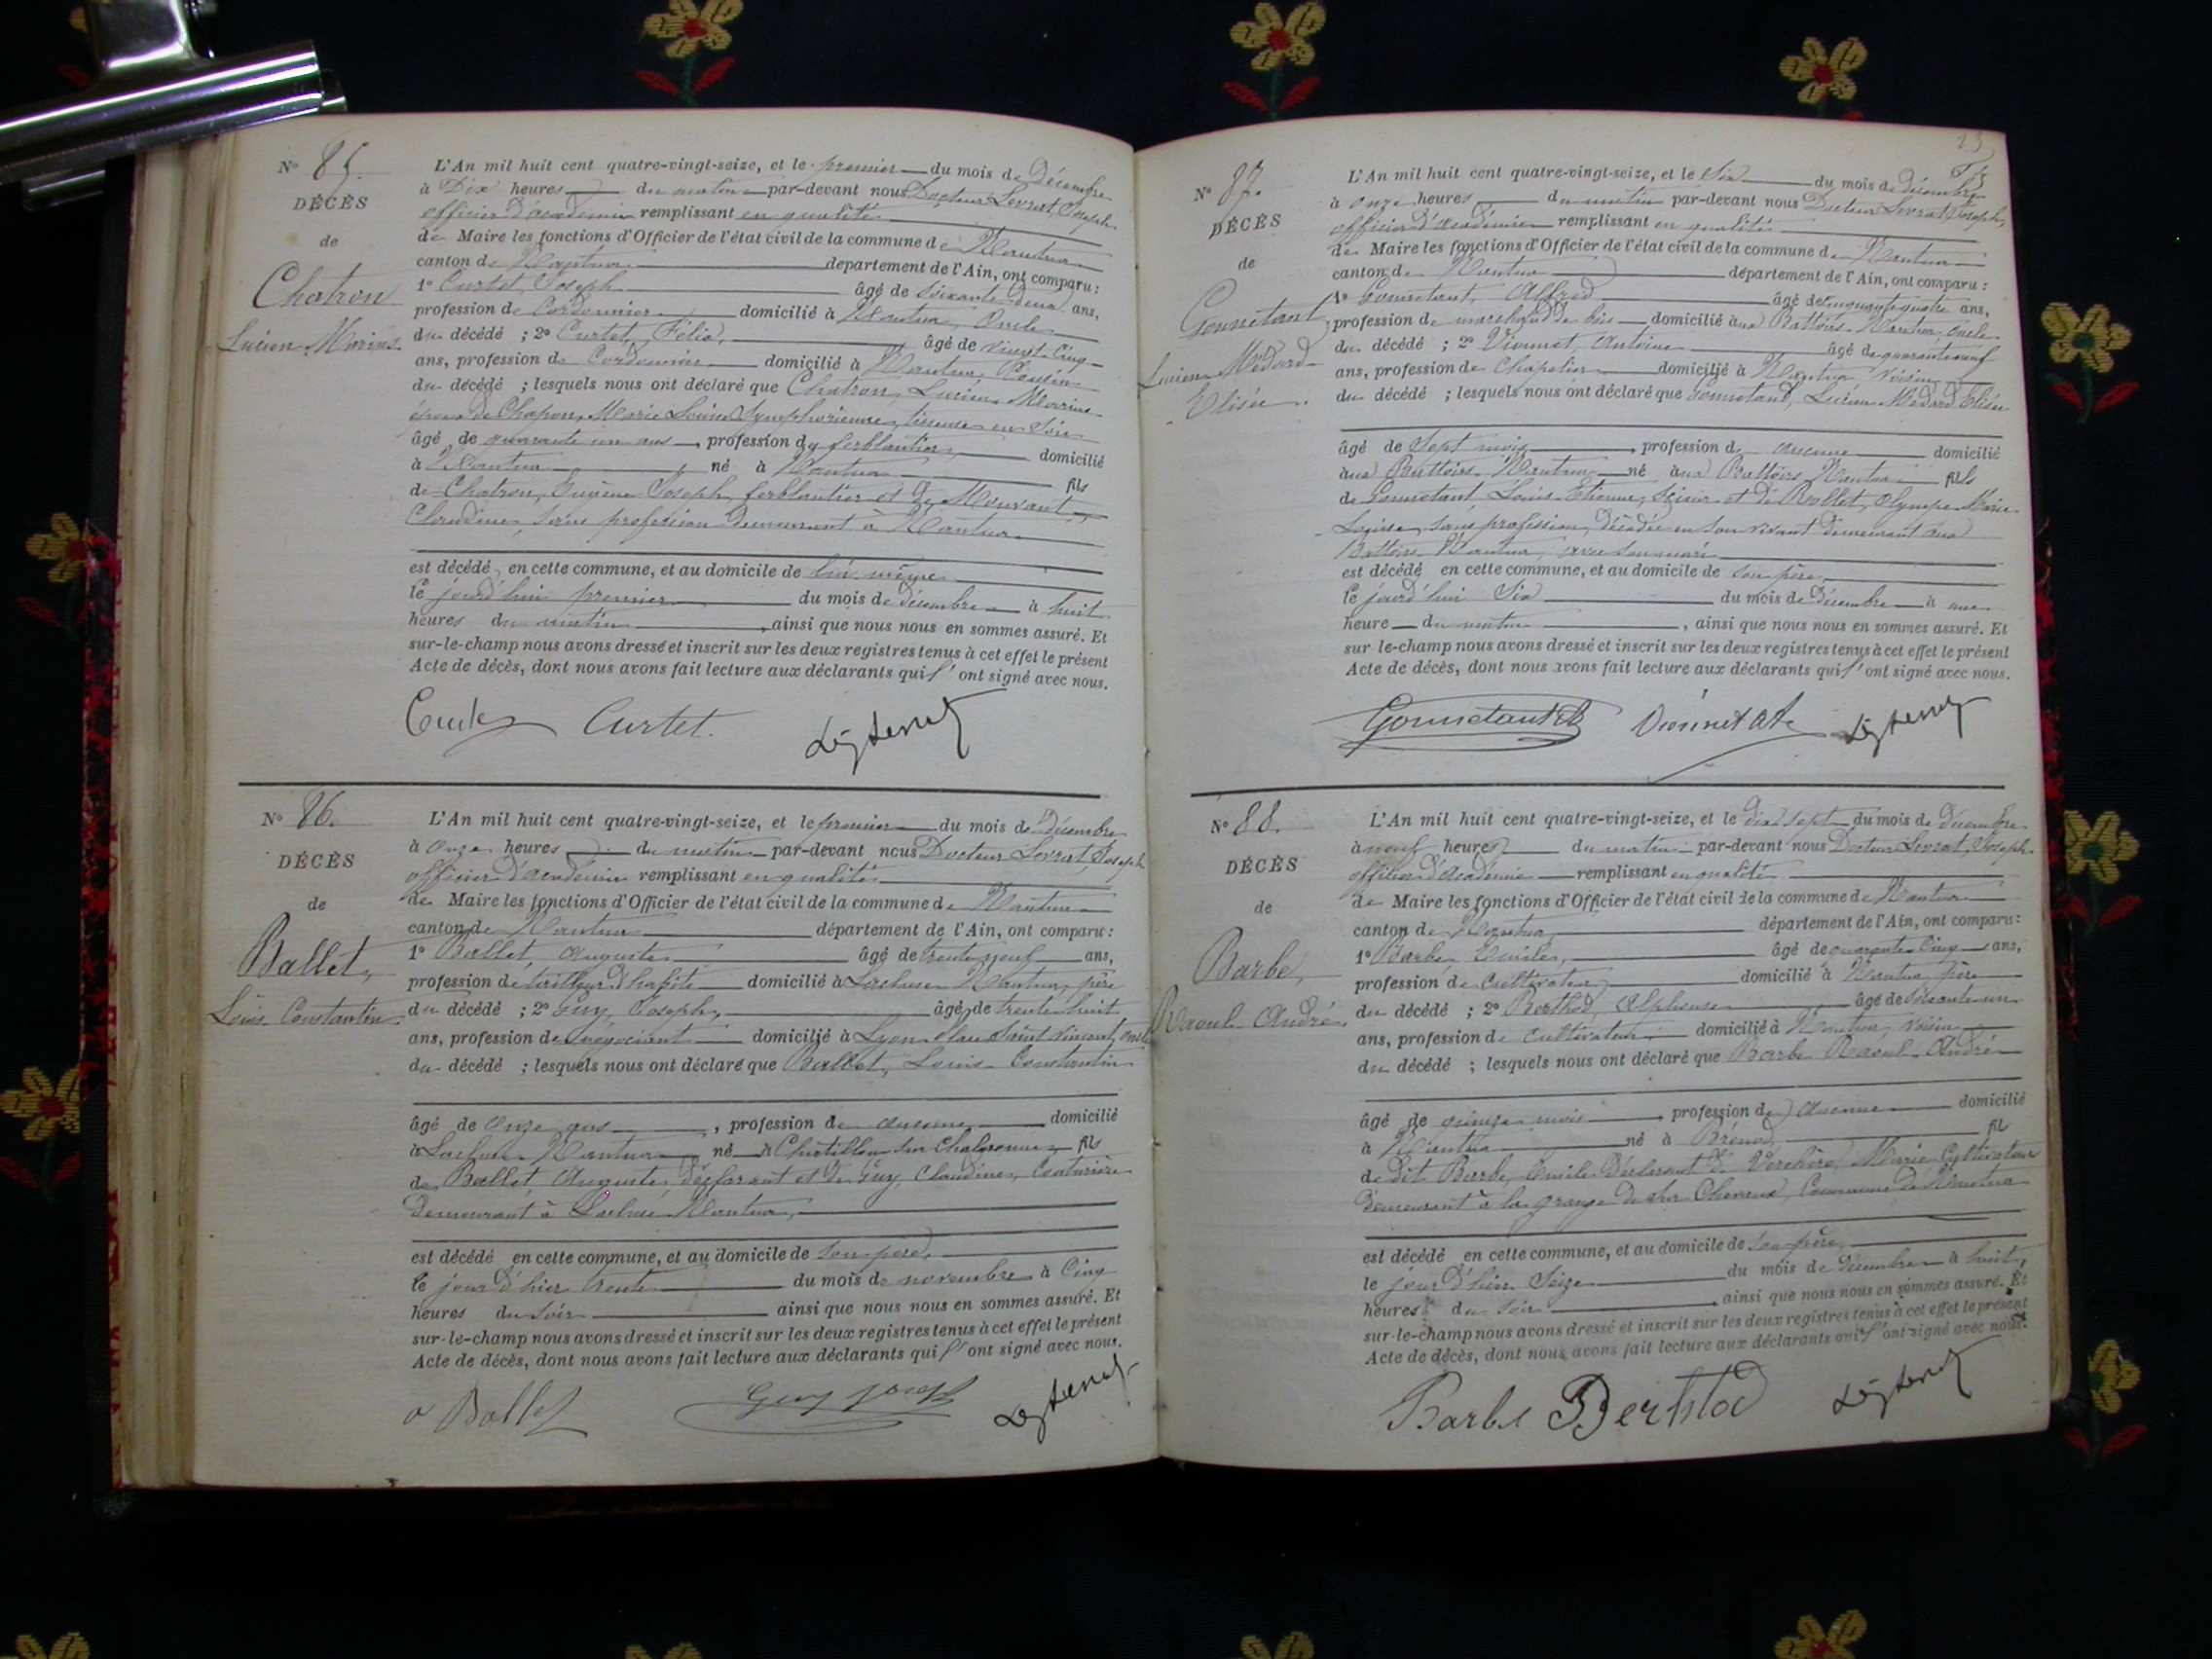 N° 85.
DÉCÈS
de
Chatron
Lucien Marius
L'An mil huit cent quatre-vingt-seize, et le premier du mois de Décembre
à Dix heures du matin par-devant nous Docteur Levrat, Joseph
officier d'académie remplissant en qualité
de Maire les fonctions d'Officier de l'état civil de la commune de Nantua
canton de Nantua département de l'Ain, ont comparu :
1° Curtet, Joseph âgé de soixante deux ans,
profession de Cordonnier domicilié à Nantua, Oncle
du décédé ; 2° Curtet, Félix, âgé de vingt-cinq
ans, profession de Cordonnier domicilié à Nantua, Cousin
du décédé ; lesquels nous ont déclaré que Chatron, Lucien Marius
époux de Chapon, Marie Louise Symphorienne, tisseuse en soie
âgé de quarante un ans, profession de ferblantier, domicilié
à Nantua né à Nantua fils
de Chatron, Eugène Joseph, ferblantier et de
Claudine, sans profession demeurant à Nantua
est décédé en cette commune, et au domicile de lui même
le jourd'hui premier du mois de Décembre à huit
heures du matin, ainsi que nous nous en sommes assuré. Et
sur-le-champ nous avons dressé et inscrit sur les deux registres tenus à cet effet le présent
Acte de décès, dont nous avons fait lecture aux déclarants qui l'ont signé avec nous.
Curtet Curtet.
N° 86.
DÉCÈS
de
Ballet,
Louis Constantin
L'An mil huit cent quatre-vingt-seize, et le premier du mois de décembre
à onze heures du matin par-devant nous Docteur Levrat, Joseph
officier d'académie remplissant en qualité
de Maire les fonctions d'Officier de l'état civil de la commune de Nantua
canton de Nantua département de l'Ain, ont comparu :
1° Ballet, Auguste âgé de trente neuf ans,
profession de tailleur d'habits domicilié à Lacluse Nantua, père
du décédé ; 2° Guy, Joseph, âgé de trente huit
ans, profession de négociant domicilié à Lyon place Saint Vincent, oncle
du décédé ; lesquels nous ont déclaré que Ballet, Louis Constantin
âgé de onze ans, profession de aucune domicilié
à Lacluse Nantua né à Chatillon sur Chalaronne, fils
de Ballet Auguste, déclarant et de Guy, Claudine, Couturière
demeurant à Lacluse Nantua,
est décédé en cette commune, et au domicile de son père,
le jour d'hier trente du mois de novembre à cinq
heures du soir ainsi que nous nous en sommes assuré. Et
sur-le-champ nous avons dressé et inscrit sur les deux registres tenus à cet effet le présent
Acte de décès, dont nous avons fait lecture aux déclarants qui l'ont signé avec nous.
a Ballet Guy Joseph
23
N° 87.
DÉCÈS
de
Gonnetant,
Lucien Médard
Elisée
L'An mil huit cent quatre-vingt-seize, et le six du mois de décembre
à onze heures du matin par-devant nous Docteur Levrat, Joseph,
officier d'académie remplissant en qualité
de Maire les fonctions d'Officier de l'état civil de la commune de Nantua
canton de Nantua département de l'Ain, ont comparu :
1° Gonnetant, Alfred âgé de cinquante quatre ans,
profession de marchand de bois domicilié aux Battoirs Nantua oncle
du décédé ; 2° Vionnet, Antoine âgé de quarante neuf
ans, profession de chapelier domicilié à Nantua voisin
du décédé ; lesquels nous ont déclaré que Gonnetant, Lucien Médard Elisée
âgé de sept mois, profession de aucune domicilié
aux Battoirs Nantua né aux Battoirs Nantua fils
de Gonnetant, Louis Etienne, scieur et de Bollet, Olympe Marie
Louise, sans profession, décédée en son vivant demeurant aux
Battoirs Nantua, avec son mari
est décédé en cette commune, et au domicile de son père,
le jourd'hui six du mois de Décembre à une
heure du matin, ainsi que nous nous en sommes assuré. Et
sur le-champ nous avons dressé et inscrit sur les deux registres tenus à cet effet le présent
Acte de décès, dont nous avons fait lecture aux déclarants qui l'ont signé avec nous.
Gonnetant Vionnet Ate
N° 88.
DÉCÈS
de
Barbe,
Raoul André
L'An mil huit cent quatre-vingt-seize, et le dix sept du mois de décembre
à neuf heures du matin par-devant nous Docteur Levrat, Joseph
officier d'académie remplissant en qualité
de Maire les fonctions d'Officier de l'état civil de la commune de Nantua
canton de Nantua département de l'Ain, ont comparu :
1° Barbe Emile, âgé de quarante cinq ans,
profession de cultivateur domicilié à Nantua, père
du décédé ; 2° Berthod, Alphonse âgé de soixante un
ans, profession de cultivateur domicilié à Nantua, voisin
du décédé ; lesquels nous ont déclaré que Barbe Raoul André
âgé de quinze mois, profession de aucune domicilié
à Nantua né à Brénod, fils
de dit Barbe, Emile déclarant de Verchère, Marie Cultivateur
demeurant à la grange de Chevreul, Commune de Nantua
est décédé en cette commune, et au domicile de son père,
le jour d'hier seize du mois de décembre à huit
heures du soir, ainsi que nous nous en sommes assuré. Et
sur-le-champ nous avons dressé et inscrit sur les deux registres tenus à cet effet le présent
Acte de décès, dont nous avons fait lecture aux déclarants qui l'ont signé avec nous.
Barbe Berthod